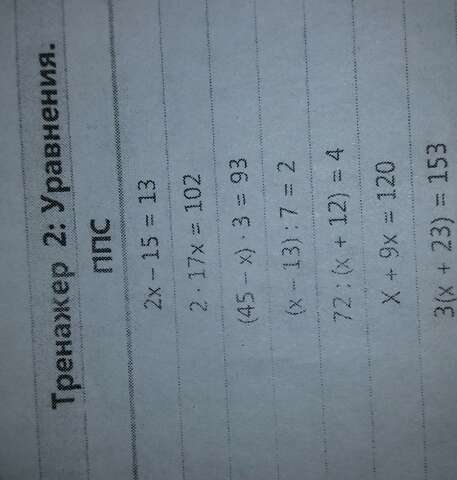 Тренажер 2: Уравнения.
ППС
2x – 15 = 13
2 · 17x = 102
(45 – x) · 3 = 93
(x – 13) : 7 = 2
72 : (x + 12) = 4
X + 9x = 120
3(x + 23) = 153